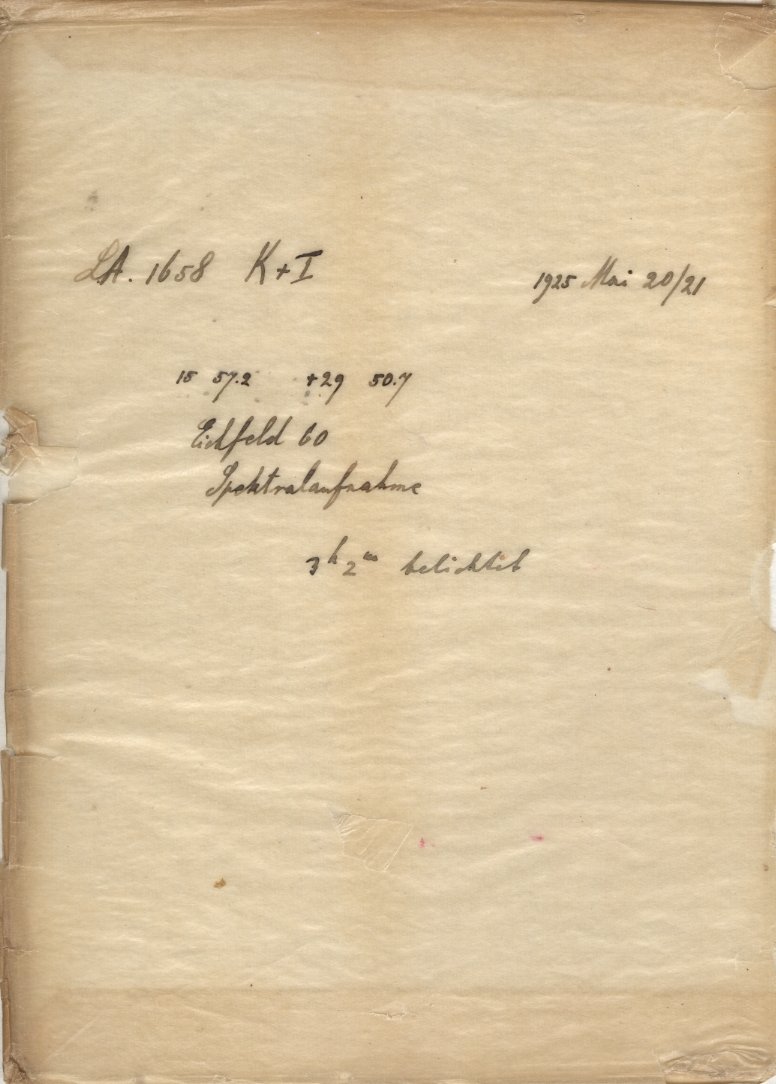 LA. 1658 K+I 1925 Mai 20/21
15 57.2 +29 50.7
Eichfeld 60
Spektralaufnahme
3h 2m belichtet